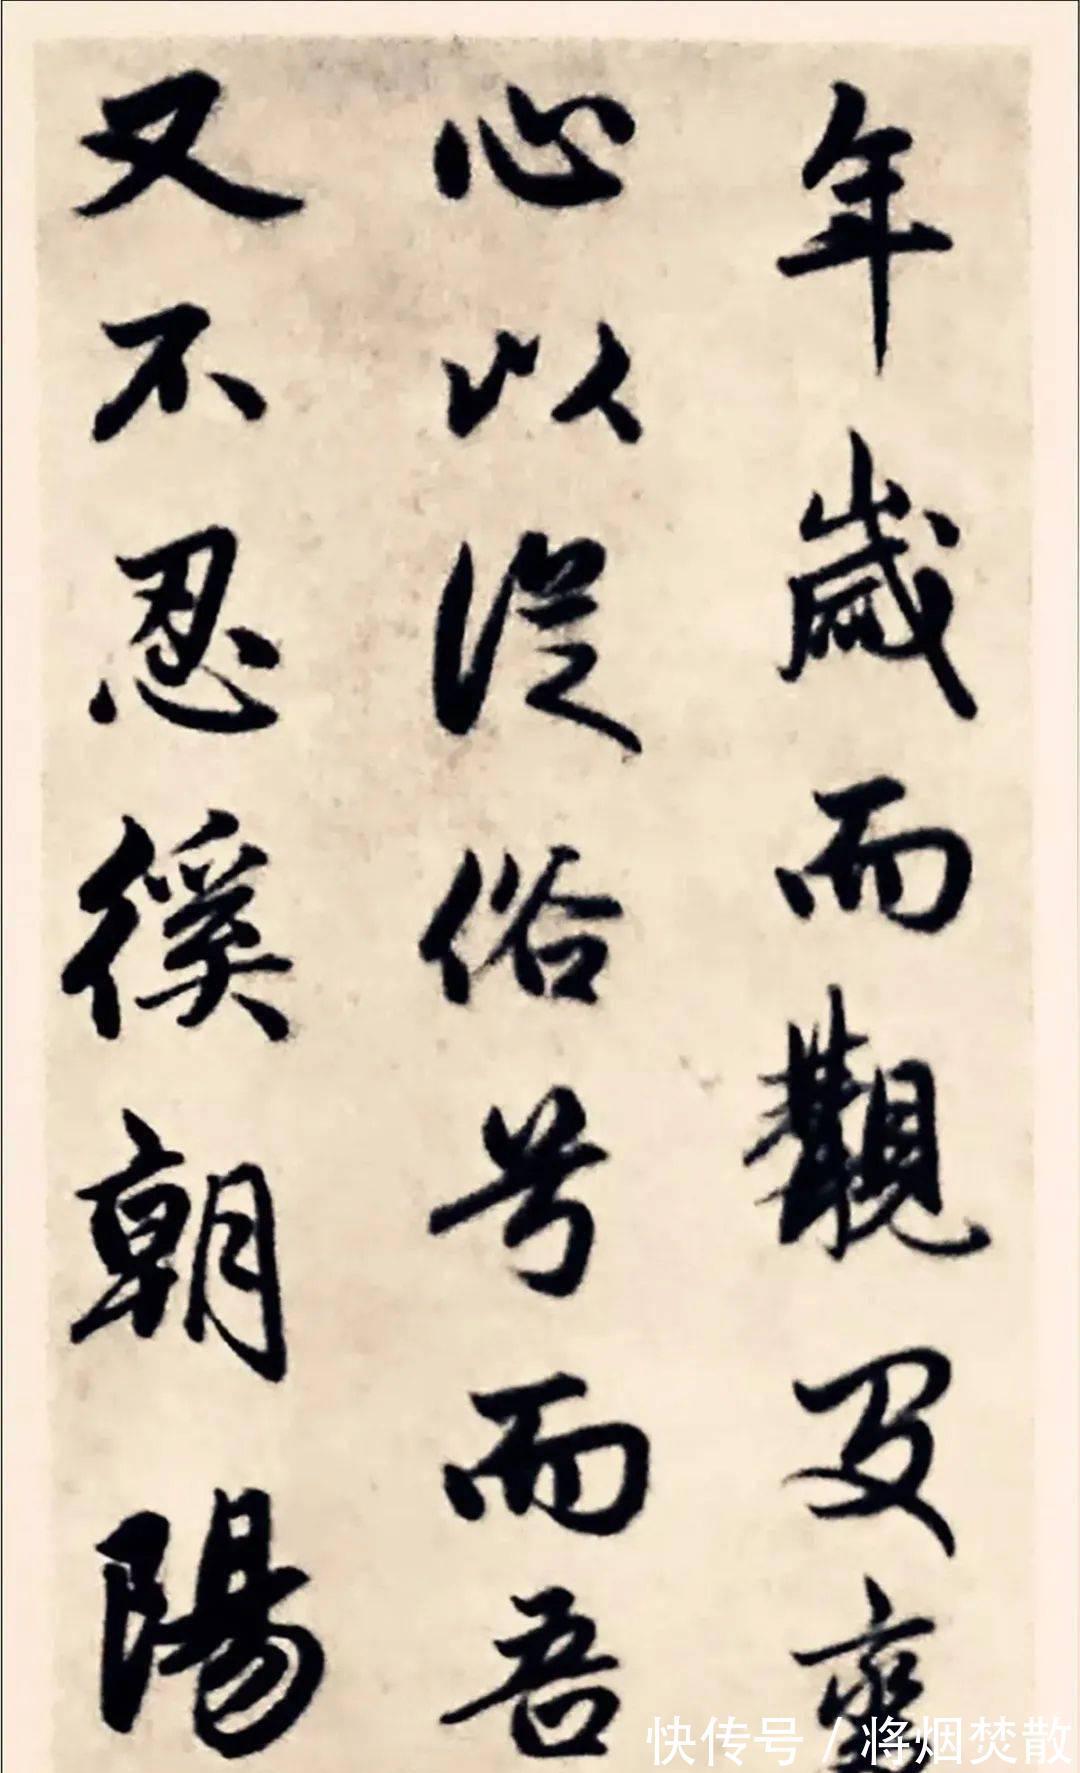 年歲而觀
心以從俗兮而吾
又不忍徯朝陽
快传号 / 将烟焚散